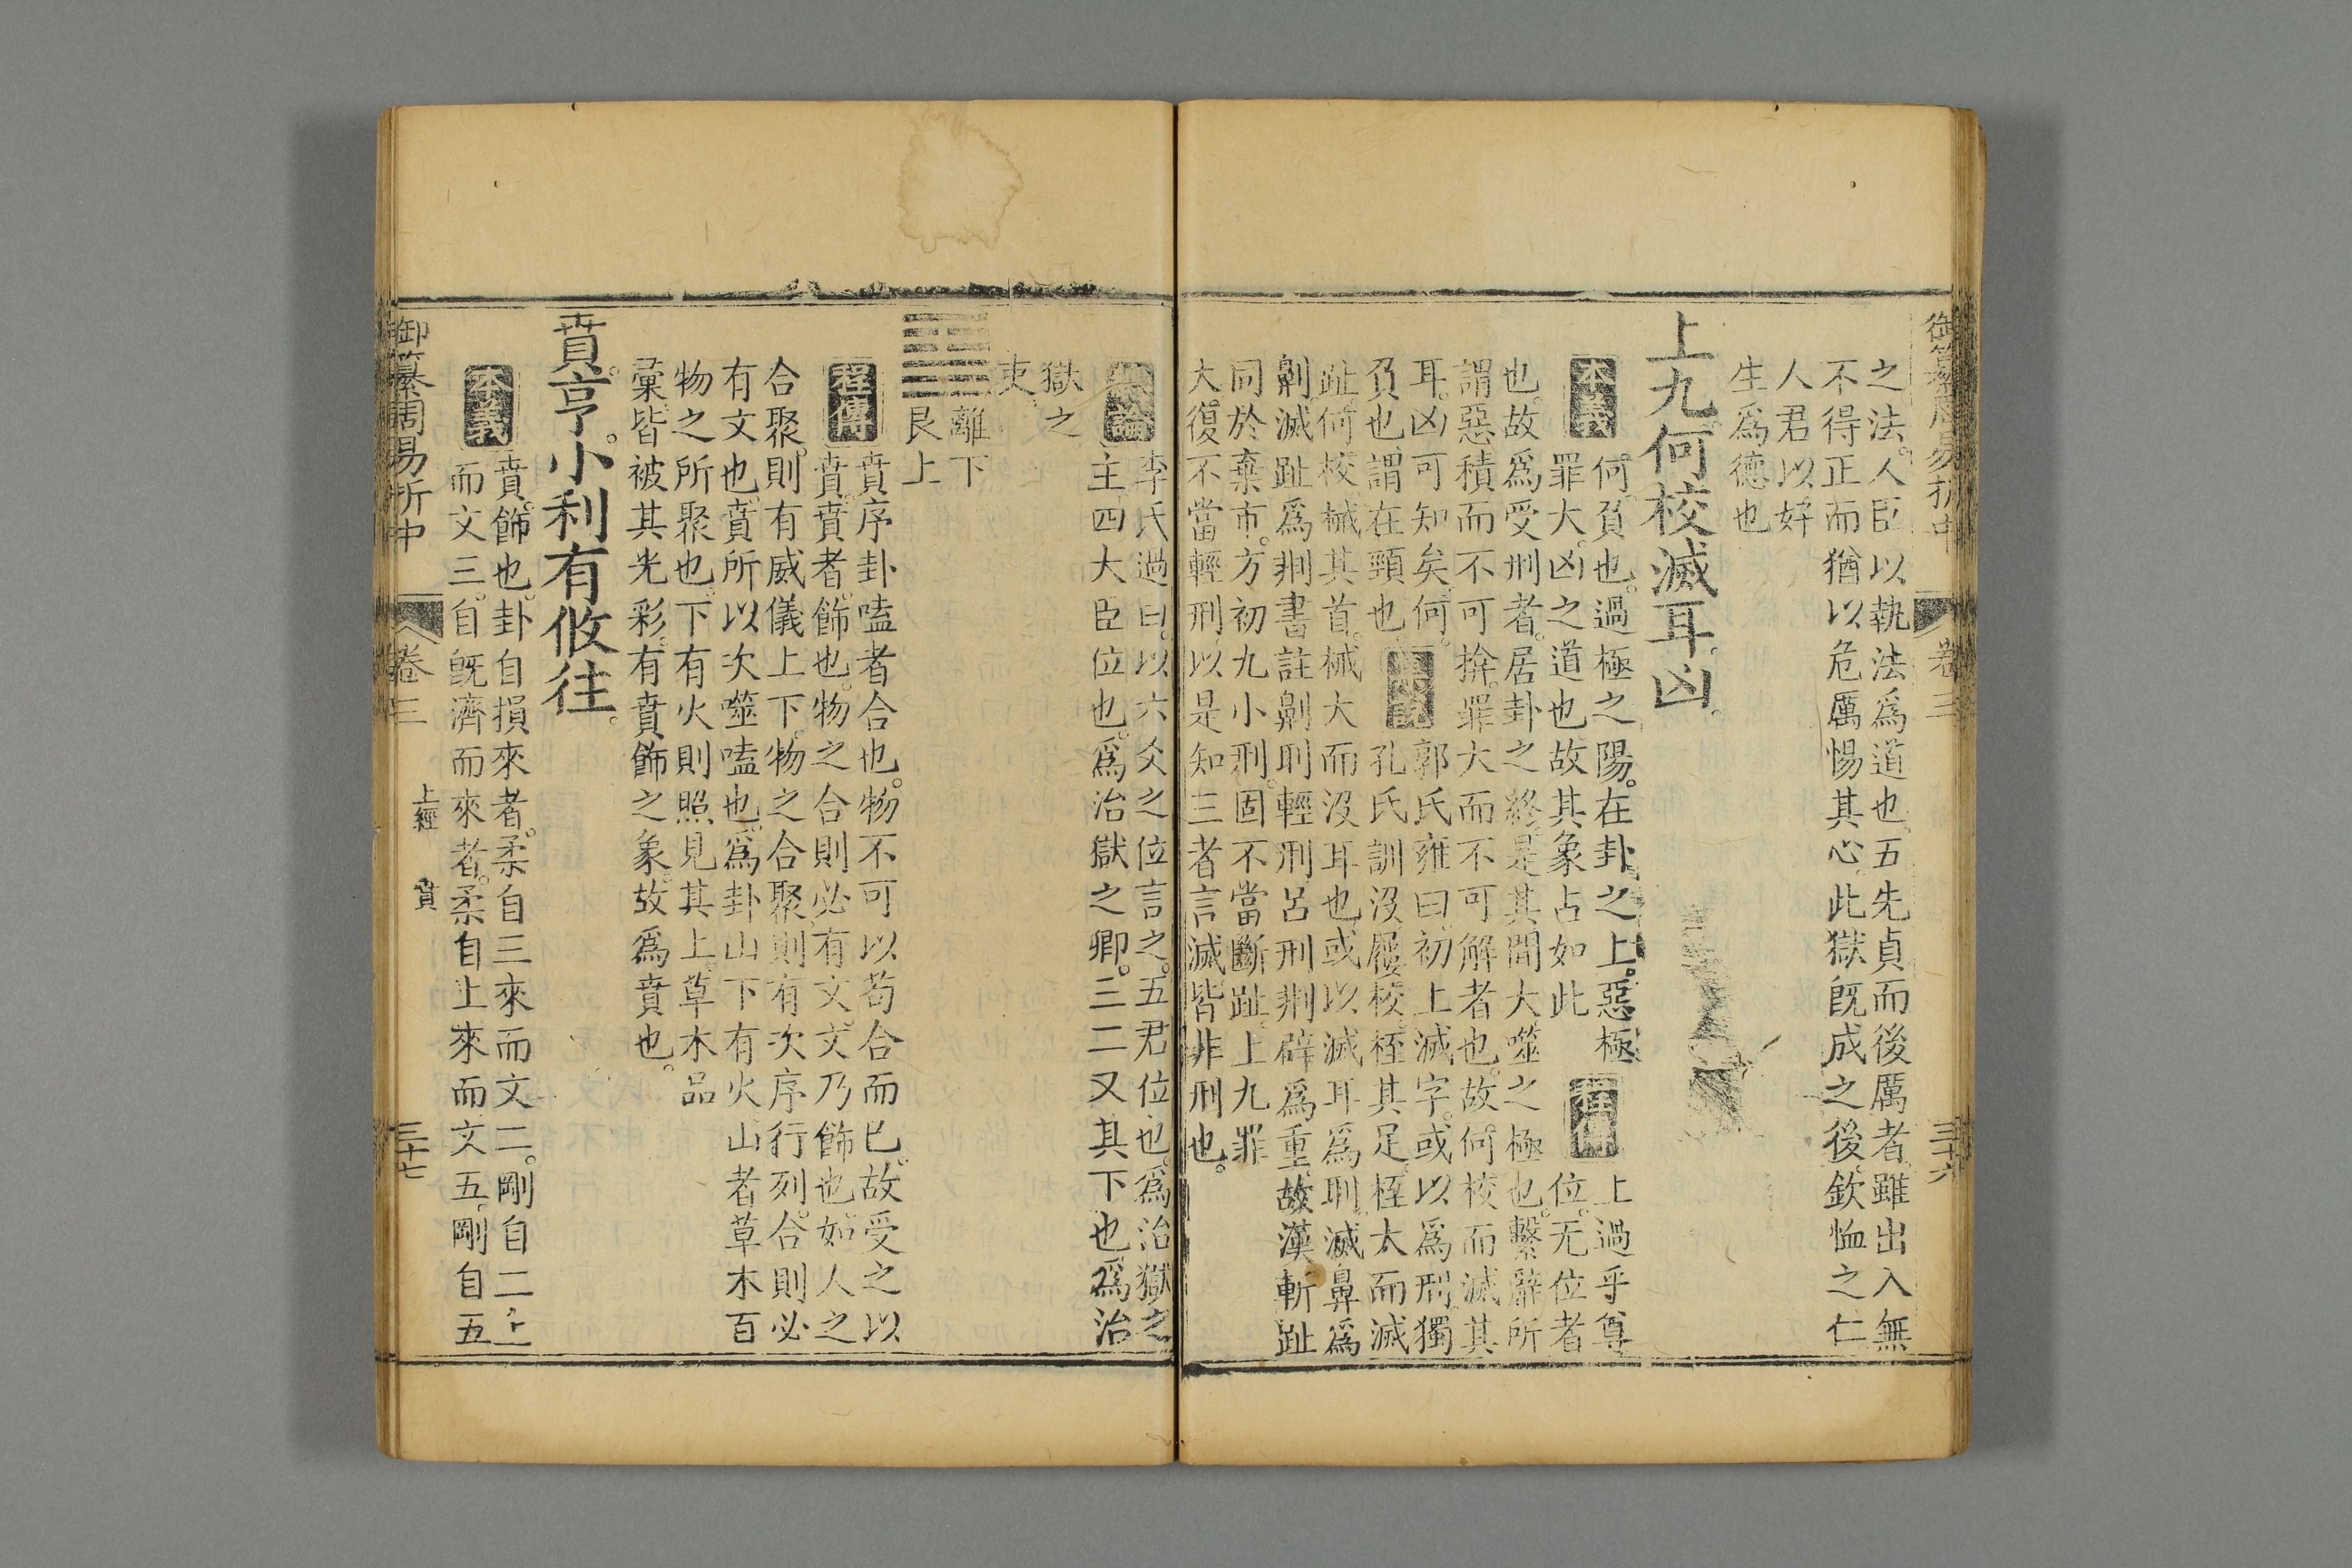 御纂周易折中
卷三
三十六
之法。人臣以執法爲道也。五先貞而後厲者。雖出入無
不得正而猶以危厲惕其心。此獄旣成之後。欽恤之仁
人君以好
生爲德也
上九何校滅耳。凶。
本義
何。負也。過極之陽。在卦之上。惡極
罪大。凶之道也。故其象占如此
程傳
上過乎尊
位。无位者
也。故爲受刑者。居卦之終。是其間大噬之極也。繫辭所
謂惡積而不可揜。罪大而不可解者也。故何校而滅其
耳。凶可知矣。何。
負也。謂在頸也
集說
郭氏雍曰。初上滅字。或以爲刑。獨
孔氏訓沒。屨校。桎其足。桎大而滅
趾。何校。械其首。械大而沒耳也。或以滅耳爲刵。滅鼻爲
劓。滅趾爲剕。書註劓刵輕刑。呂刑剕辟爲重。故漢斬趾
同於棄市。方初九小刑。固不當斷趾。上九罪
大。復不當輕刑。以是知三者言滅。皆非刑也。
總論
李氏過曰。以六爻之位言之。五君位也。爲治獄之
主。四大臣位也。爲治獄之卿。三二又其下也。爲治
獄之
吏。
離下
艮上
程傳
賁序卦嗑者合也。物不可以苟合而已。故受之以
賁。賁者。飾也。物之合則必有文。文乃飾也。如人之
合聚。則有威儀上下。物之合聚。則有次序行列。合則必
有文也。賁所以次噬嗑也。爲卦山下有火。山者草木百
物之所聚也。下有火則照見其上。草木品
彙。皆被其光彩。有賁飾之象。故爲賁也。
賁亨。小利有攸往。
本義
賁。飾也。卦自損來者。柔自三來而文二。剛自二上
而文三。自旣濟而來者。柔自上來而文五。剛自五
御纂周易折中
卷三
上經 賁
三十七